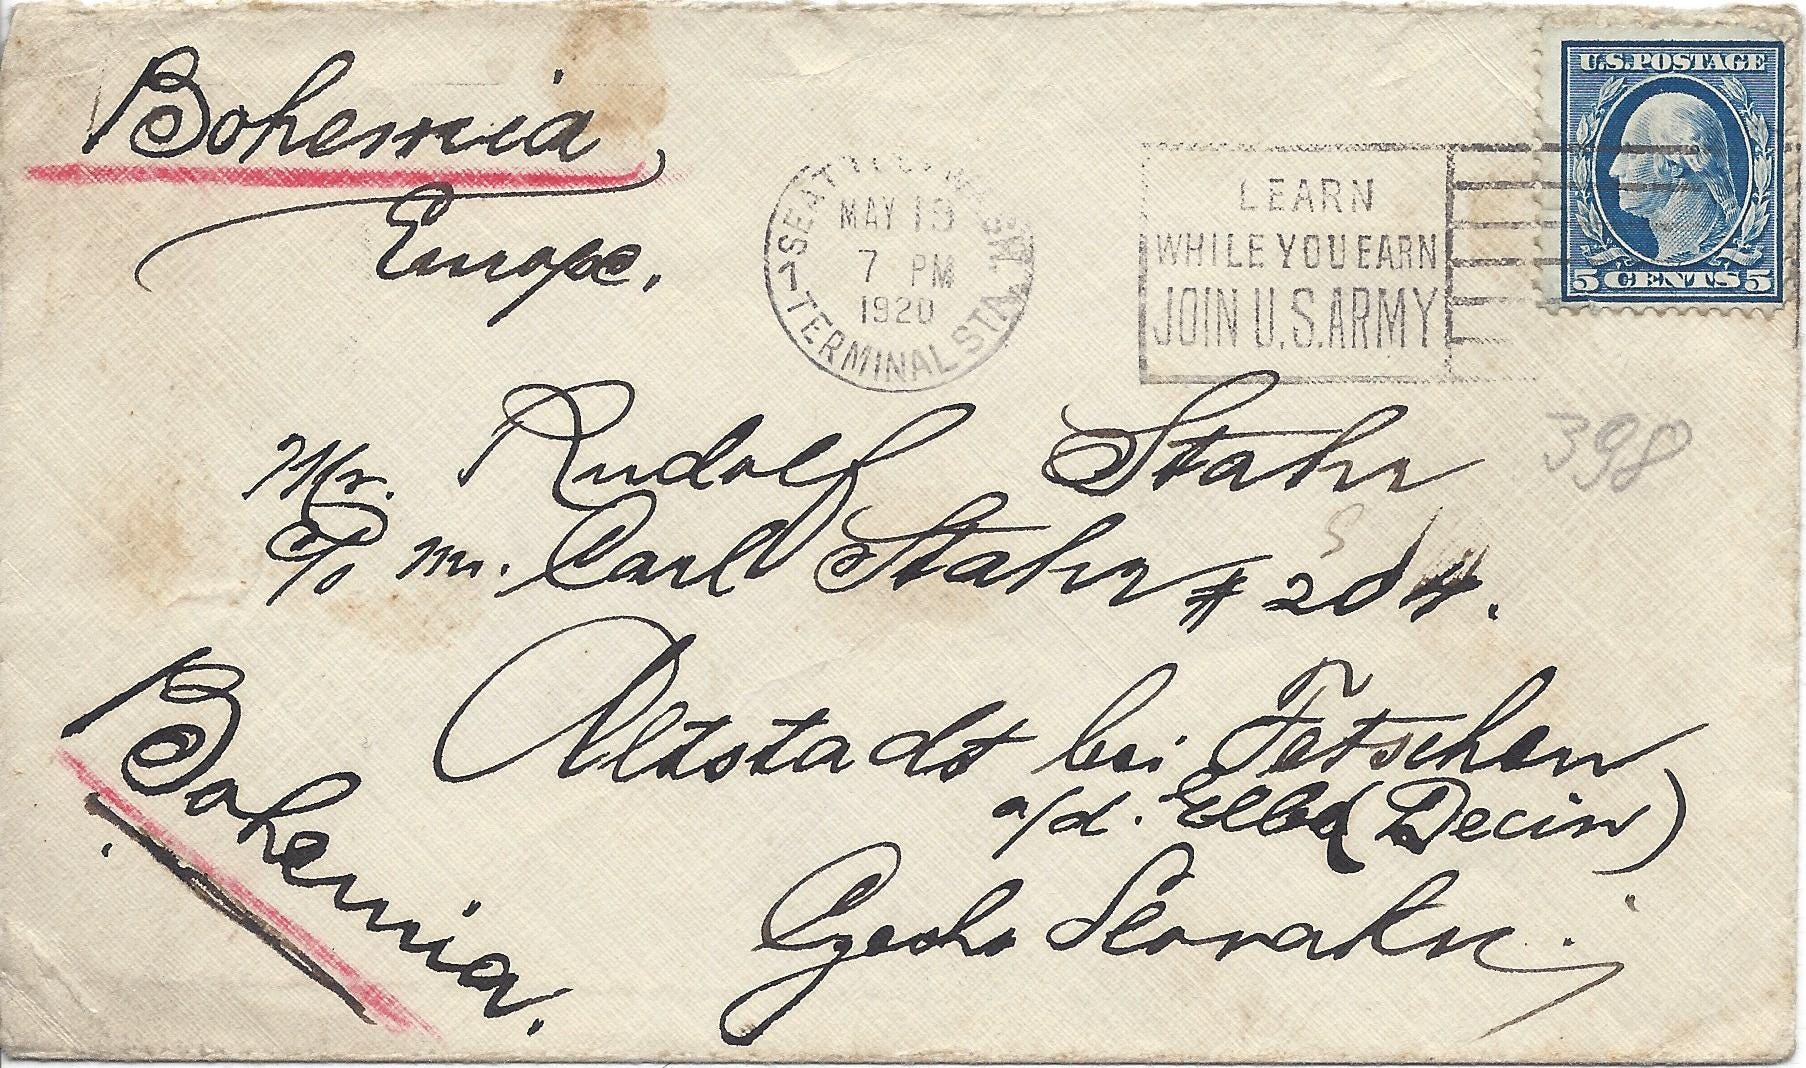 Bohemia
Europe.
SEATTLE, WASH.
MAY 19
7 PM
1920
TERMINAL STA.
LEARN
WHILE YOU EARN
JOIN U.S. ARMY
U.S. POSTAGE
5 CENTS 5
398
Mr. Rudolf Stahr
c/o Mr. Carl Stahr # 204.
Altstadt bei Tetschen
a/d. Elbe (Decin)
Czecho Slovakei.
Bohemia.